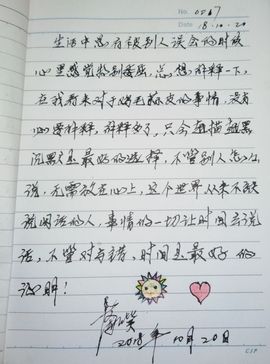 No. 0217
Date 18.10.20
生活中总有被别人误会的时候
心里感觉特别委屈,总想解释一下,
在我看来对于鸡毛蒜皮的事情,没有
必要解释,解释多了,只会越描越黑
沉默是最好的选择,不管别人怎么
说,无需放在心上,这个世界从来不缺
说闲话的人,事情的一切让时间去说
话,不管对与错,时间是最好的
证明!
笑
2018年10月20日